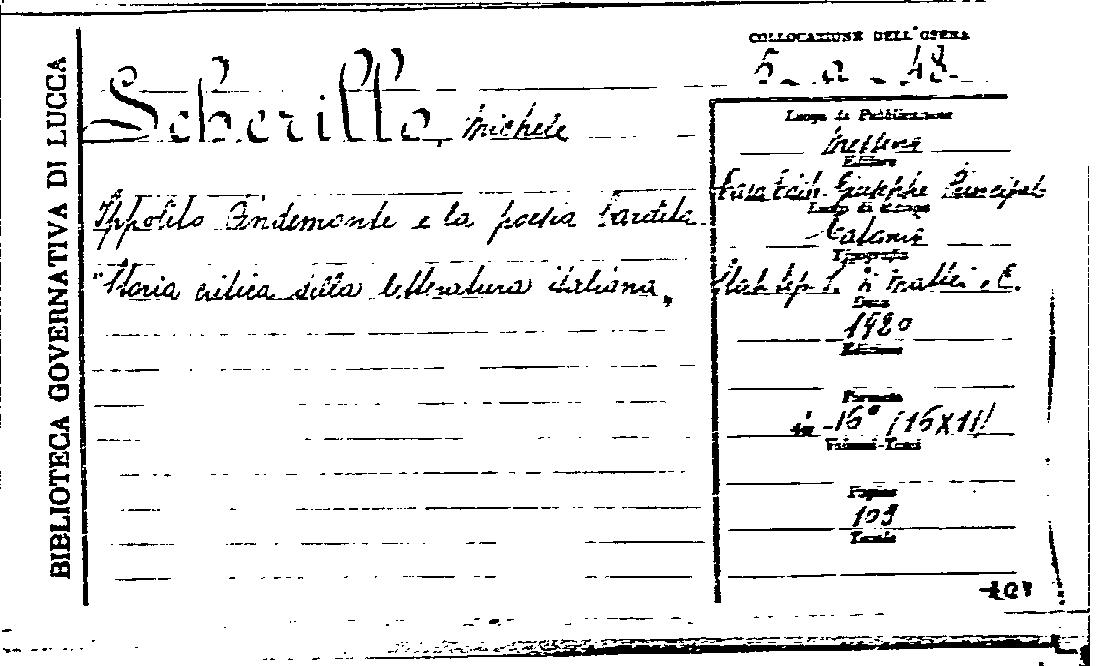 BIBLIOTECA GOVERNATIVA DI LUCCA
COLLOCAZIONE DELL'OPERA
5 - a - 48
Scherillo, Michele
Ippolito Pindemonte e la poesia
"Storia critica della letteratura italiana"
Luogo di Pubblicazione
Messina
Editore
Giuseppe Principato
Luogo di Stampa
Catania
Tipografia
Stab. tip. S. Di Mattei e C.
Data
1920
Edizione
Formato
in-16° (16X11)
Volumi-Tomi
Pagine
109
Tavole